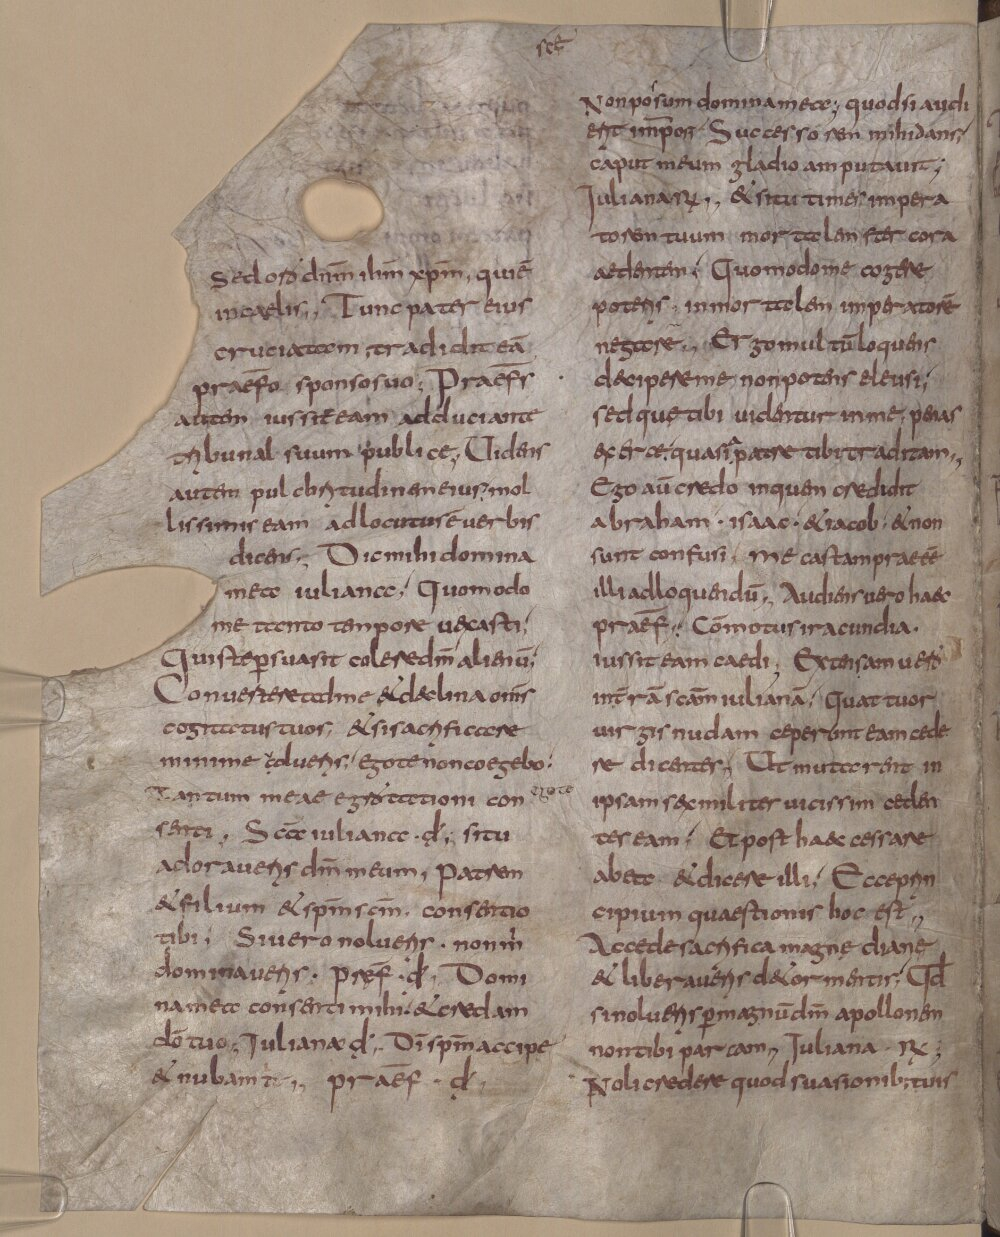 scē
Sed orō dn̄m ihm̄ xpm̄, qui ē
in caelis;, Tunc pater eius
cruciatam, tradidit eā
praef̄o sponso suo; Praef̄s
autem iussit eam adduci ante
tribunal suum publice; Uidens
autem pulchritudinem eius, mol
lissimis eam adlocutus ē uerbis
dicens; Dic mihi domina
mea iuliana; Quomodo
me tanto tempore uacasti;
Quis te persuasit colere dm̄ alienū;
Conuertere ad me & declina om̄s
cogitatus tuos, & si sacrificare
minime adueris, ego te non coegebo.
Tantum meae egrotationi con
senti; Sc̄a iuliana · d; si tu
adoraueris dm̄ meum, patrem
& filium & spm̄ scm̄ · consentio
tibi; Si uero nolueris · non m̄
dominaueris · Praef̄ · d; Domi
na mea consenti mihi, & credam
dō tuo; Iuliana d; Di spm̄ accipe
& nubam t; praēf · d;
Non possum domina mea; quod si audi
erit imp̄r · Successorem mihi dans,
caput meum gladio amputauit;
Iuliana rx;, & si tu times impera
torem tuum mortalem stercora
aedentem; Quomodo me cogere
poteris, inmortalem imperatorē
negare; Ergo multū loquens
decipere me non poteris eleusi;
sed que tibi uidentur in me, penas
exerce, quasi a patre tibi traditam;,
Ego aū credo in quem credidit
abraham · isaac · & iacob · & non
sunt confusi, me castam praeēē
illi adloquendū;, Audiens uero haec
praēf · Cōmotus iracundia ·
iussit eam caedi; Extensam uerō
in t̄rā scām iulianā; Quattuor
uirgis nudam ceperunt eam cede
re dicentes; Ut mutarent in
ipsam sex militer uicissim ceden
tes eam; Et post haec cessare
abeto & dicere illi; Ecce prin
cipium quaestionis hoc est;,
Accede sacrifica magne diane
& liberaueris de tormentis; Qd
si nolueris p̄ magnū dm̄ apollonem
non tibi parcam;, Iuliana · rx;
Noli credere quod suasionib; tuis